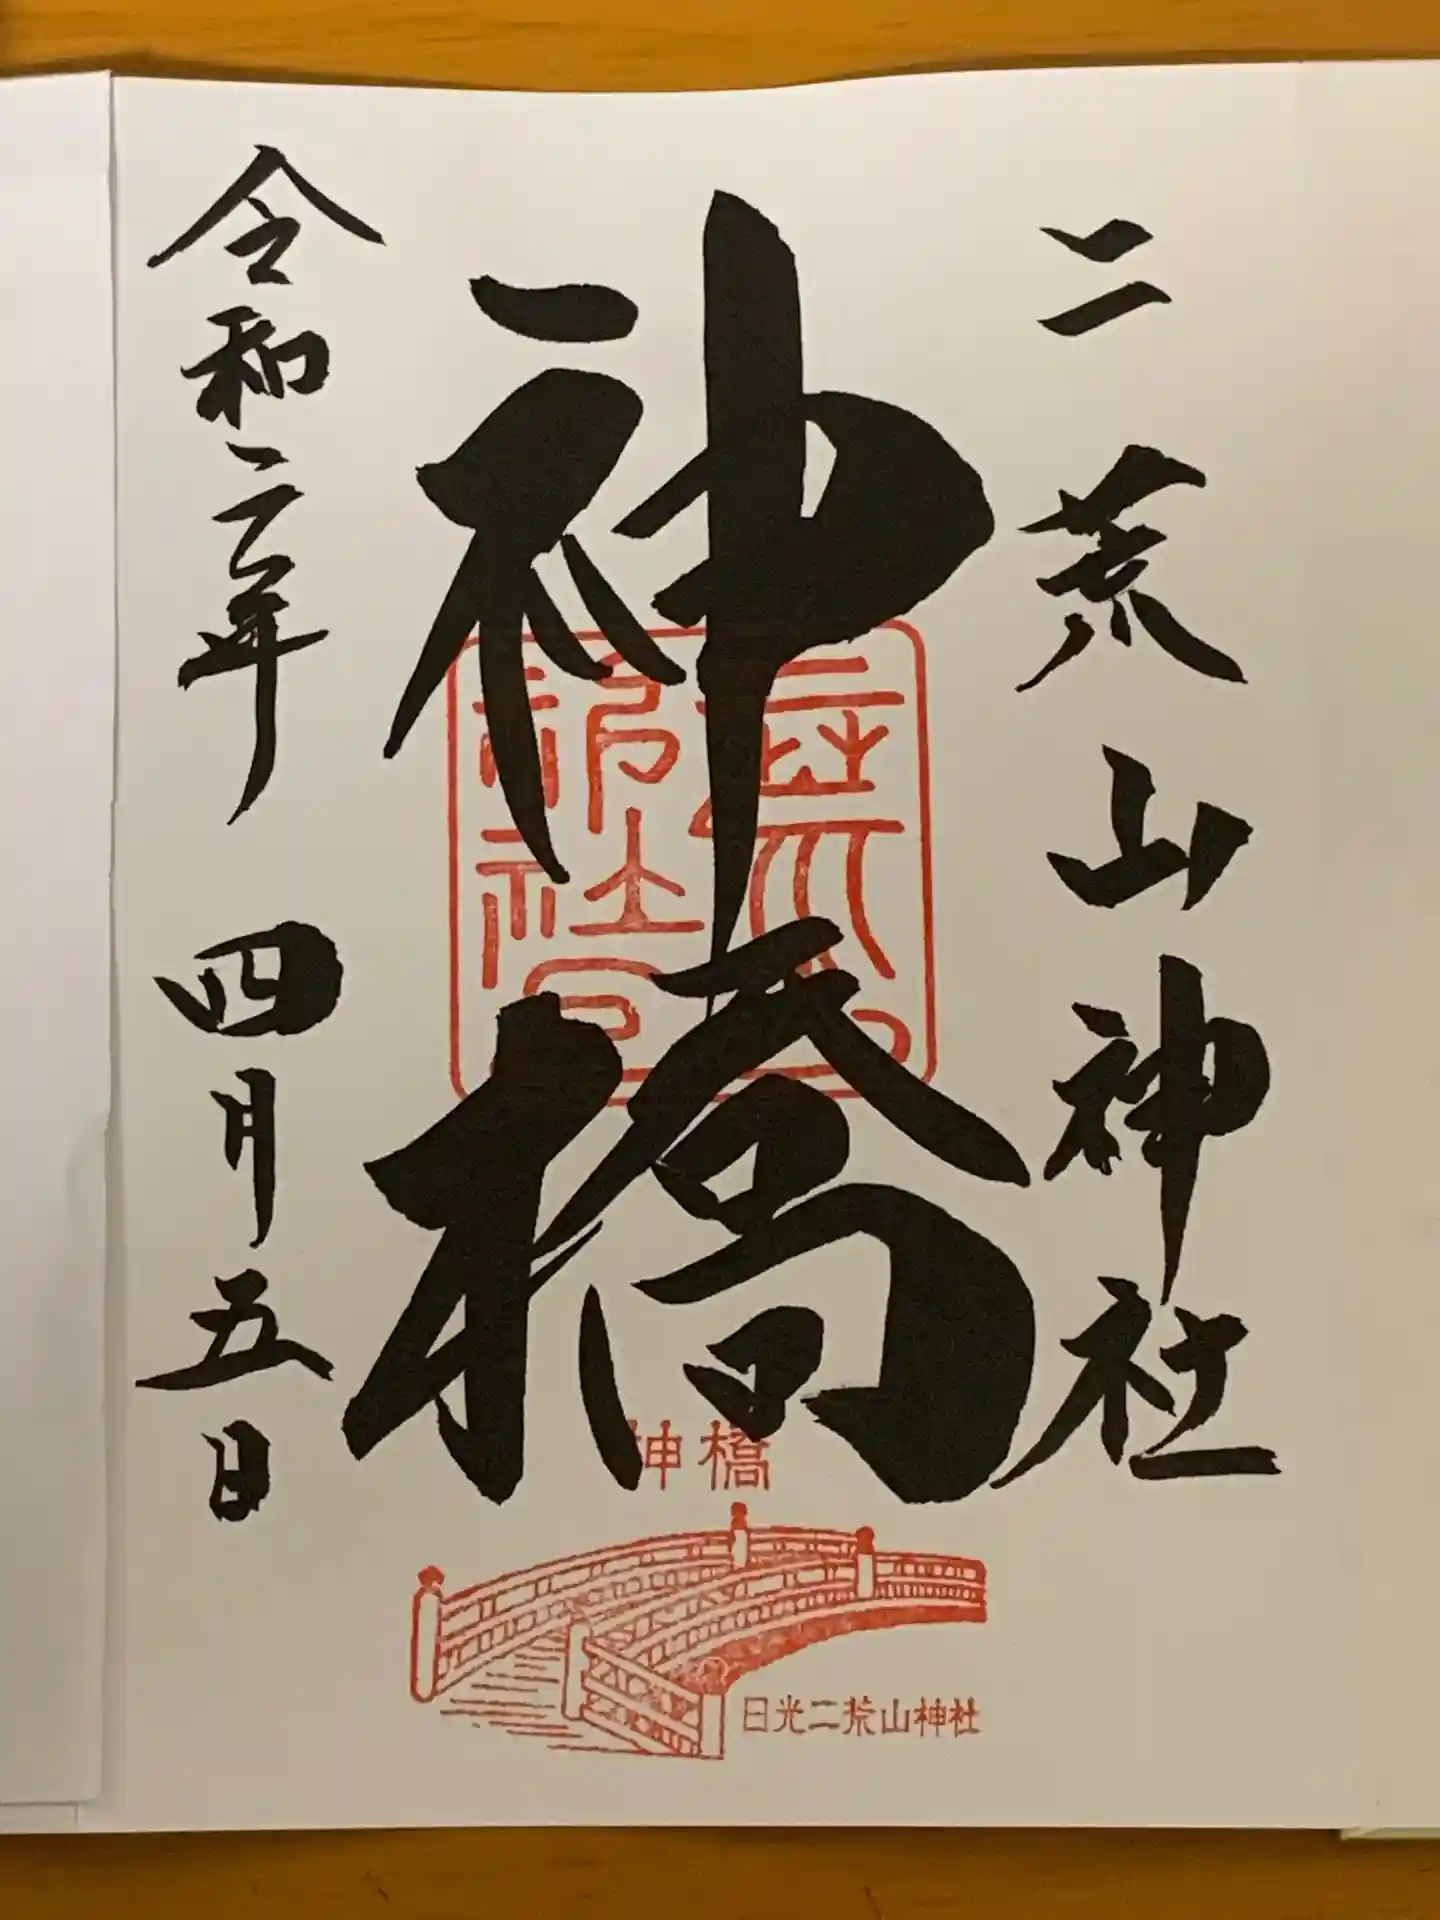 二荒山神社
神橋
令和二年四月五日
神橋
日光二荒山神社